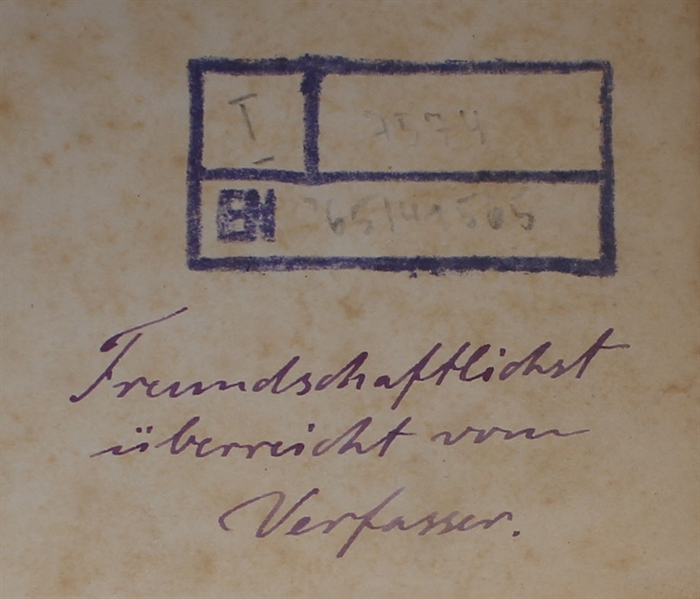 I 7574
EN 65/41505
Freundschaftlichst
überreicht vom
Verfasser.